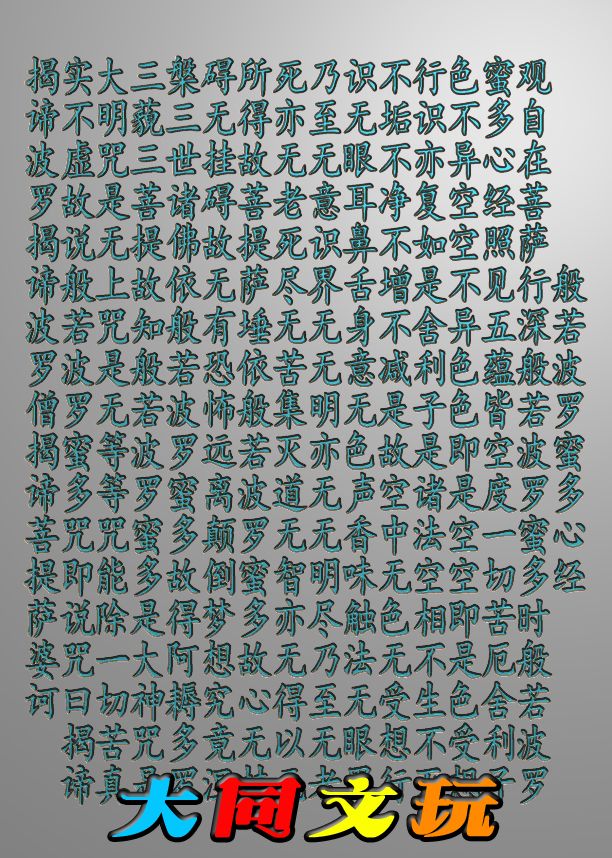 般若波罗蜜多心经
观自在菩萨行深般若波罗蜜多时般若波罗
蜜多心经照见五蕴皆空度一切苦厄舍利子
色不异空空不异色色即是空空即是色受想
行识亦复如是舍利子是诸法空相不生不灭
不垢不净不增不减是故空中无色无受想行
识无眼耳鼻舌身意无色声香味触法无眼界
乃至无意识界无无明亦无无明尽乃至无老
死亦无老死尽无苦集灭道无智亦无得以无
所得故菩提萨埵依般若波罗蜜多故心无挂
碍无挂碍故无有恐怖远离颠倒梦想究竟涅
槃三世诸佛依般若波罗蜜多故得阿耨多罗
三藐三菩提故知般若波罗蜜多是大神咒是
大明咒是无上咒是无等等咒能除一切苦真
实不虚故说般若波罗蜜多咒即说咒曰揭谛
揭谛波罗揭谛波罗僧揭谛菩提萨婆诃
大同文玩